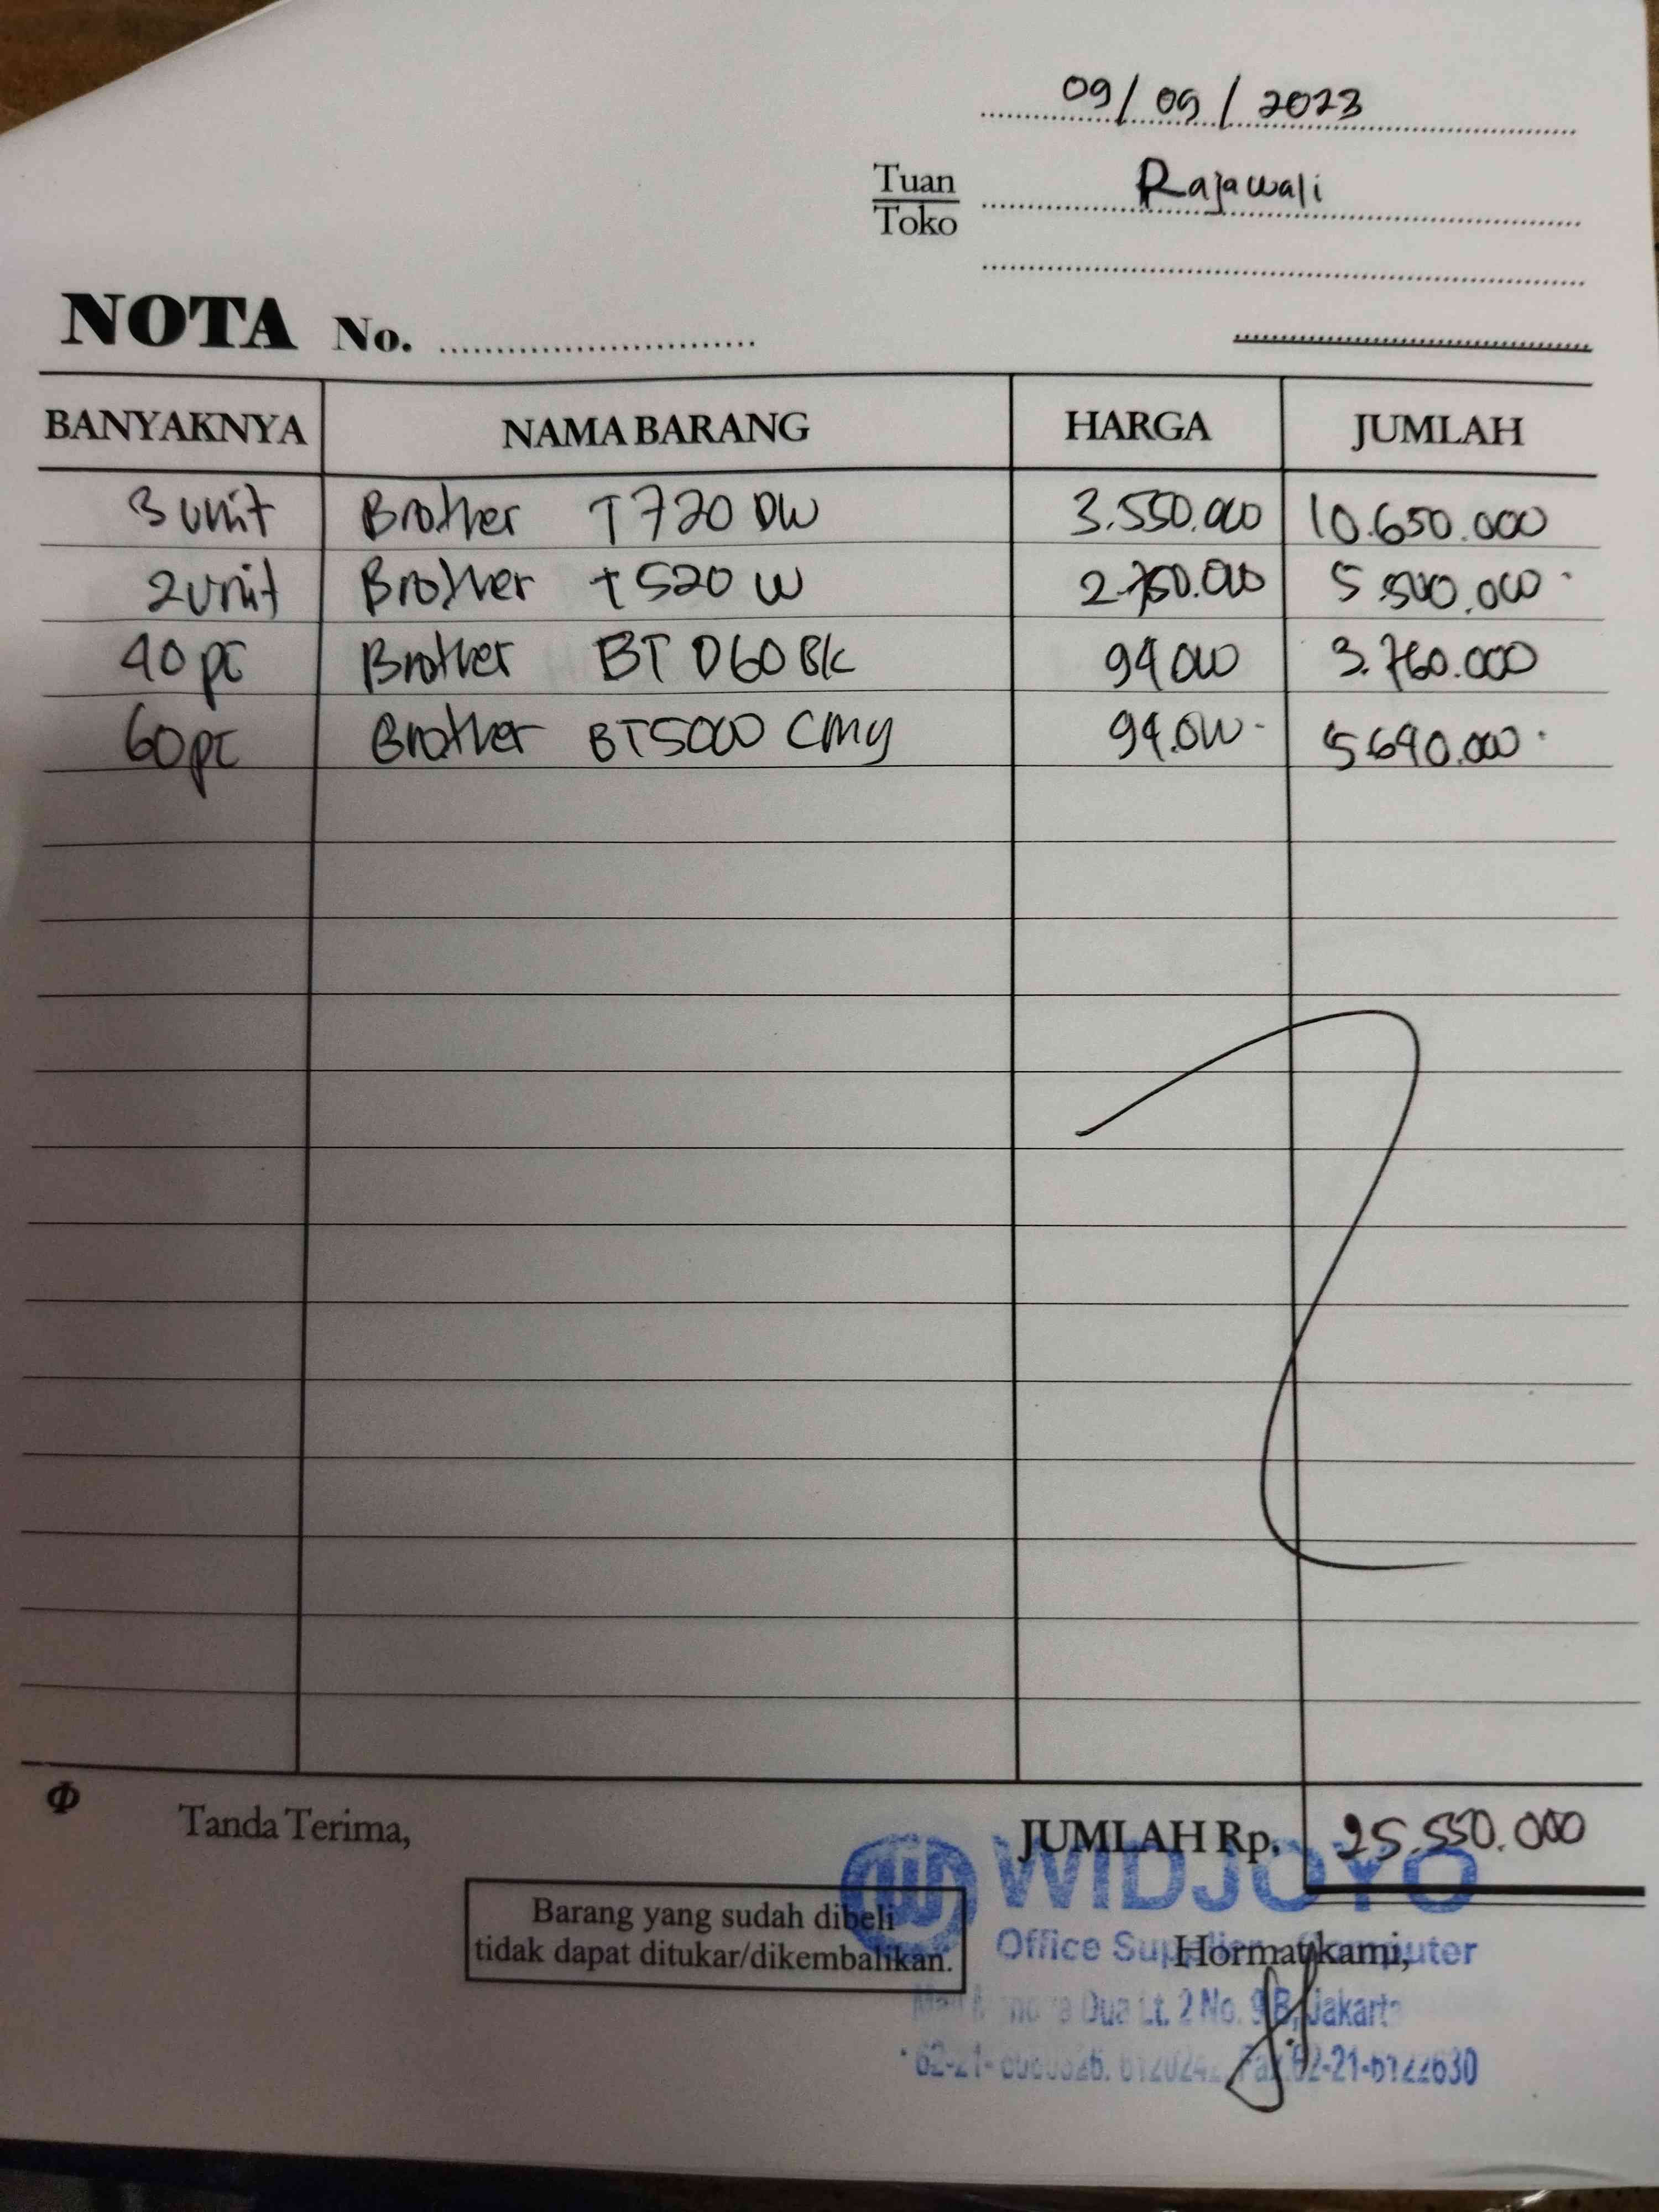 09/09/2023
Tuan
Toko
Rajawali
NOTA No.
BANYAKNYA NAMA BARANG HARGA JUMLAH
3 unit Brother T720 DW 3.550.000 10.650.000
2 unit Brother T520 W 2.750.000 5.500.000
40 pc Brother BT D60 Bk 94000 3.760.000
60 pc Brother BT5000 CMY 94.000 5.640.000
Tanda Terima,
JUMLAH Rp. 25.550.000
WIDJOYO
Barang yang sudah dibeli
tidak dapat ditukar/dikembalikan.
Office Computer
Hormat kami,
Dua Lt. 2 No. 9 B, Jakarta
Fax 62-21-6122630